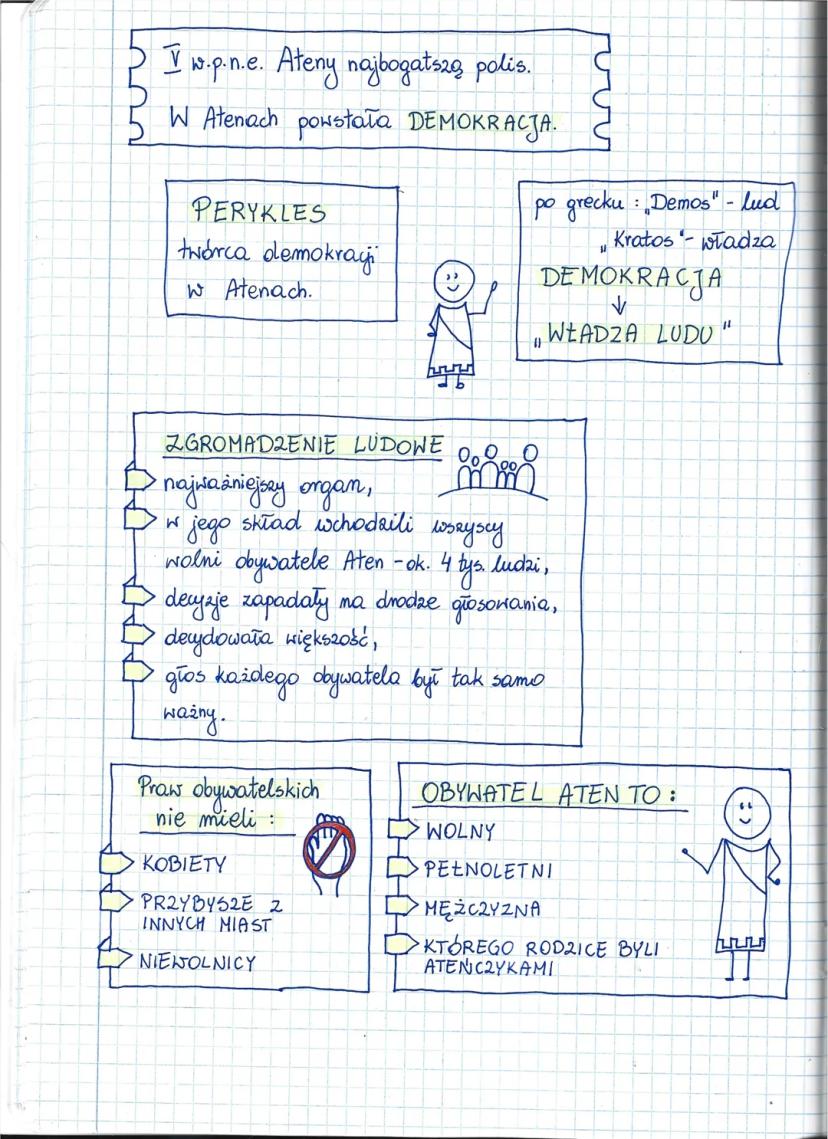 V w.p.n.e. Ateny najbogatszą polis.
W Atenach powstała DEMOKRACJA.
PERYKLES
twórca demokracji
w Atenach.
po grecku : „Demos" - lud
„Kratos" - władza
DEMOKRACJA
↓
„WŁADZA LUDU"
ZGROMADZENIE LUDOWE
najważniejszy organ,
w jego skład wchodzili wszyscy
wolni obywatele Aten - ok. 4 tys. ludzi,
decyzje zapadały na drodze głosowania,
decydowała większość,
głos każdego obywatela był tak samo
ważny.
Praw obywatelskich
nie mieli :
KOBIETY
PRZYBYSZE Z
INNYCH MIAST
NIEWOLNICY
OBYWATEL ATEN TO :
WOLNY
PEŁNOLETNI
MĘŻCZYZNA
KTÓREGO RODZICE BYLI
ATEŃCZYKAMI